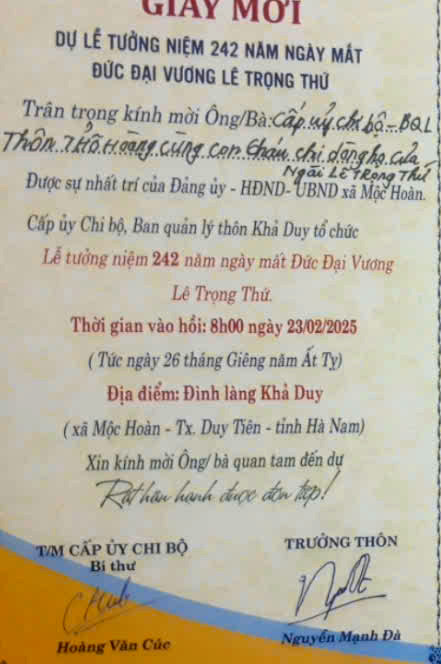 GIẤY MỜI
DỰ LỄ TƯỞNG NIỆM 242 NĂM NGÀY MẤT
ĐỨC ĐẠI VƯƠNG LÊ TRỌNG THỨ
Trân trọng kính mời Ông/Bà: Cấp uỷ chi bộ - BQL
Thôn Thổ Hoàng cùng con cháu chi dòng họ của
Ngài Lê Trọng Thứ
Được sự nhất trí của Đảng ủy - HĐND- UBND xã Mộc Hoàn.
Cấp ủy Chi bộ, Ban quản lý thôn Khả Duy tổ chức
Lễ tưởng niệm 242 năm ngày mất Đức Đại Vương
Lê Trọng Thứ.
Thời gian vào hồi: 8h00 ngày 23/02/2025
( Tức ngày 26 tháng Giêng năm Ất Tỵ)
Địa điểm: Đình làng Khả Duy
( xã Mộc Hoàn - Tx. Duy Tiên - tỉnh Hà Nam)
Xin kính mời Ông/ bà quan tam đến dự
Rất hân hạnh được đón tiếp!
T/M CẤP ỦY CHI BỘ
Bí thư
Hoàng Văn Cúc
TRƯỞNG THÔN
Nguyễn Mạnh Đà